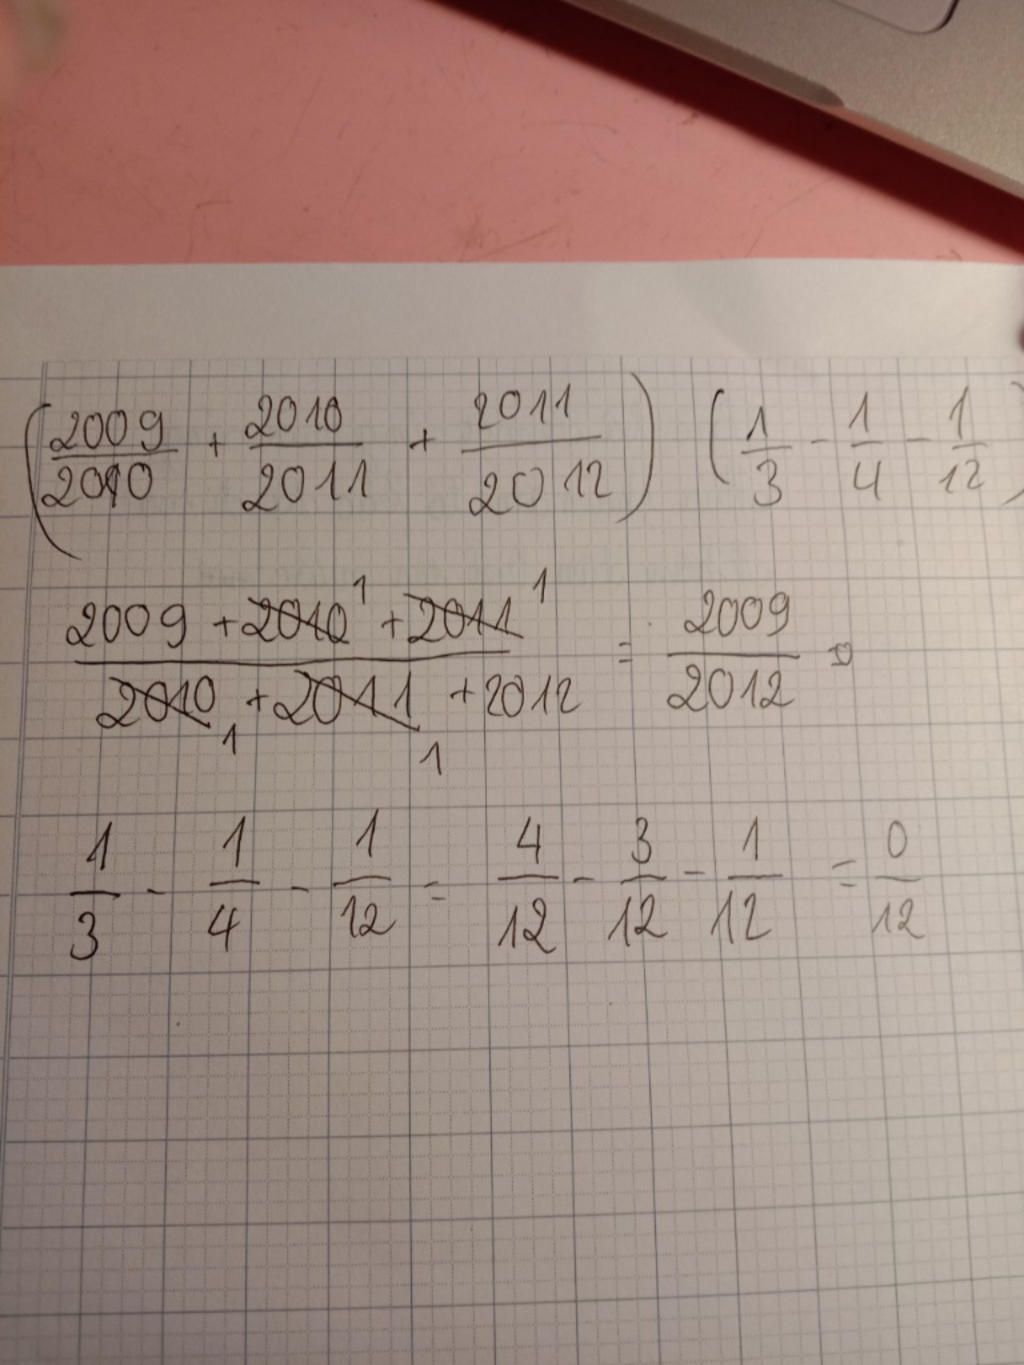 (2009/2010 + 2010/2011 + 2011/2012) (1/3 - 1/4 - 1/12)
(2009 + 2010 1 + 2011 1)/(2010 1 + 2011 1 + 2012) = 2009/2012
1/3 - 1/4 - 1/12 = 4/12 - 3/12 - 1/12 = 0/12